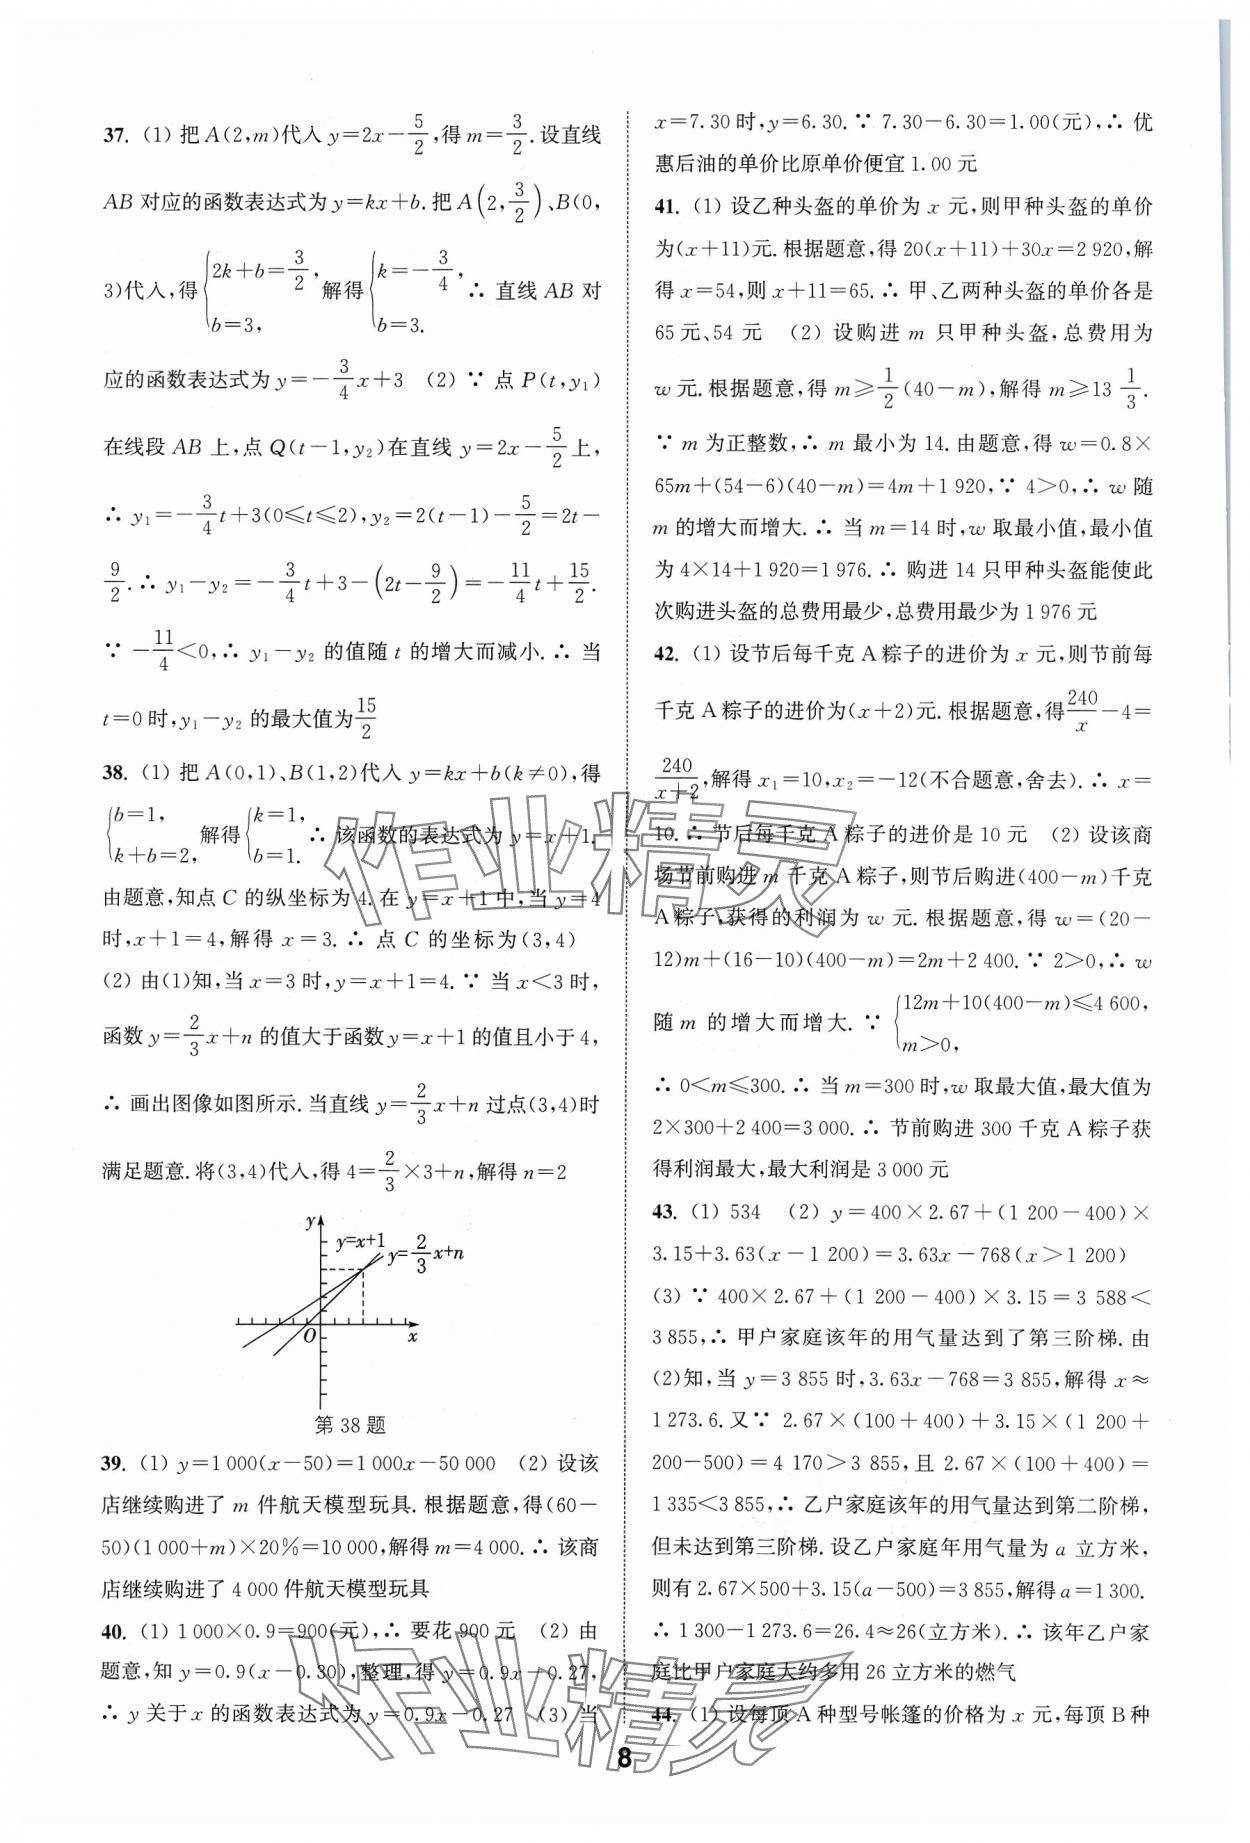 37. (1) 把 A(2,m)代入 y=2x-5/2,得 m=3/2. 设直线
AB 对应的函数表达式为 y=kx+b. 把 A(2,3/2)、B(0,
3)代入,得{2k+b=3/2, b=3, 解得{k=-3/4, b=3. ∴ 直线 AB 对
应的函数表达式为 y=-3/4x+3 (2) ∵ 点 P(t,y₁)
在线段 AB 上,点 Q(t-1,y₂)在直线 y=2x-5/2上,
∴ y₁=-3/4t+3(0≤t≤2),y₂=2(t-1)-5/2=2t-
9/2. ∴ y₁-y₂=-3/4t+3-(2t-9/2)=-11/4t+15/2.
∵ -11/4<0,∴ y₁-y₂ 的值随 t 的增大而减小. ∴ 当
t=0 时,y₁-y₂ 的最大值为15/2
38. (1) 把 A(0,1)、B(1,2)代入 y=kx+b(k≠0),得
{b=1, k+b=2, 解得{k=1, b=1. ∴ 该函数的表达式为 y=x+1.
由题意,知点 C 的纵坐标为 4. 在 y=x+1 中,当 y=4
时,x+1=4,解得 x=3. ∴ 点 C 的坐标为(3,4)
(2) 由(1)知,当 x=3 时,y=x+1=4. ∵ 当 x<3 时,
函数 y=2/3x+n 的值大于函数 y=x+1 的值且小于 4,
∴ 画出图像如图所示. 当直线 y=2/3x+n 过点(3,4)时
满足题意. 将(3,4)代入,得 4=2/3×3+n,解得 n=2
y
y=x+1
y=2/3x+n
O
x
第 38 题
39. (1) y=1 000(x-50)=1 000x-50 000 (2) 设该
店继续购进了 m 件航天模型玩具. 根据题意,得(60-
50)(1 000+m)×20%=10 000,解得 m=4 000. ∴ 该商
店继续购进了 4 000 件航天模型玩具
40. (1) 1 000×0.9=900(元),∴ 要花 900 元 (2) 由
题意,知 y=0.9(x-0.30),整理,得 y=0.9x-0.27,
∴ y 关于 x 的函数表达式为 y=0.9x-0.27 (3) 当
x=7.30 时,y=6.30. ∵ 7.30-6.30=1.00(元),∴ 优
惠后油的单价比原单价便宜 1.00 元
41. (1) 设乙种头盔的单价为 x 元,则甲种头盔的单价
为(x+11)元. 根据题意,得 20(x+11)+30x=2 920,解
得 x=54,则 x+11=65. ∴ 甲、乙两种头盔的单价各是
65 元、54 元 (2) 设购进 m 只甲种头盔,总费用为
w 元. 根据题意,得 m≥1/2(40-m),解得 m≥13 1/3.
∵ m 为正整数,∴ m 最小为 14. 由题意,得 w=0.8×
65m+(54-6)(40-m)=4m+1 920,∵ 4>0,∴ w 随
m 的增大而增大. ∴ 当 m=14 时,w 取最小值,最小值
为 4×14+1 920=1 976. ∴ 购进 14 只甲种头盔能使此
次购进头盔的总费用最少,总费用最少为 1 976 元
42. (1) 设节后每千克 A 粽子的进价为 x 元,则节前每
千克 A 粽子的进价为(x+2)元. 根据题意,得240/x-4=
240/(x+2),解得 x₁=10,x₂=-12(不合题意,舍去). ∴ x=
10. ∴ 节后每千克 A 粽子的进价是 10 元 (2) 设该商
场节前购进 m 千克 A 粽子,则节后购进(400-m)千克
A 粽子,获得的利润为 w 元. 根据题意,得 w=(20-
12)m+(16-10)(400-m)=2m+2 400. ∵ 2>0,∴ w
随 m 的增大而增大. ∵ {12m+10(400-m)≤4 600, m>0,
∴ 0<m≤300. ∴ 当 m=300 时,w 取最大值,最大值为
2×300+2 400=3 000. ∴ 节前购进 300 千克 A 粽子获
得利润最大,最大利润是 3 000 元
43. (1) 534 (2) y=400×2.67+(1 200-400)×
3.15+3.63(x-1 200)=3.63x-768(x>1 200)
(3) ∵ 400×2.67+(1 200-400)×3.15=3 588<
3 855,∴ 甲户家庭该年的用气量达到了第三阶梯. 由
(2)知,当 y=3 855 时,3.63x-768=3 855,解得 x≈
1 273.6. 又∵ 2.67×(100+400)+3.15×(1 200+
200-500)=4 170>3 855,且 2.67×(100+400)=
1 335<3 855,∴ 乙户家庭该年的用气量达到第二阶梯,
但未达到第三阶梯. 设乙户家庭年用气量为 a 立方米,
则有 2.67×500+3.15(a-500)=3 855,解得 a=1 300.
∴ 1 300-1 273.6=26.4≈26(立方米). ∴ 该年乙户家
庭比甲户家庭大约多用 26 立方米的燃气
44. (1) 设每顶 A 种型号帐篷的价格为 x 元,每顶 B 种
8
作业精灵
作业精灵